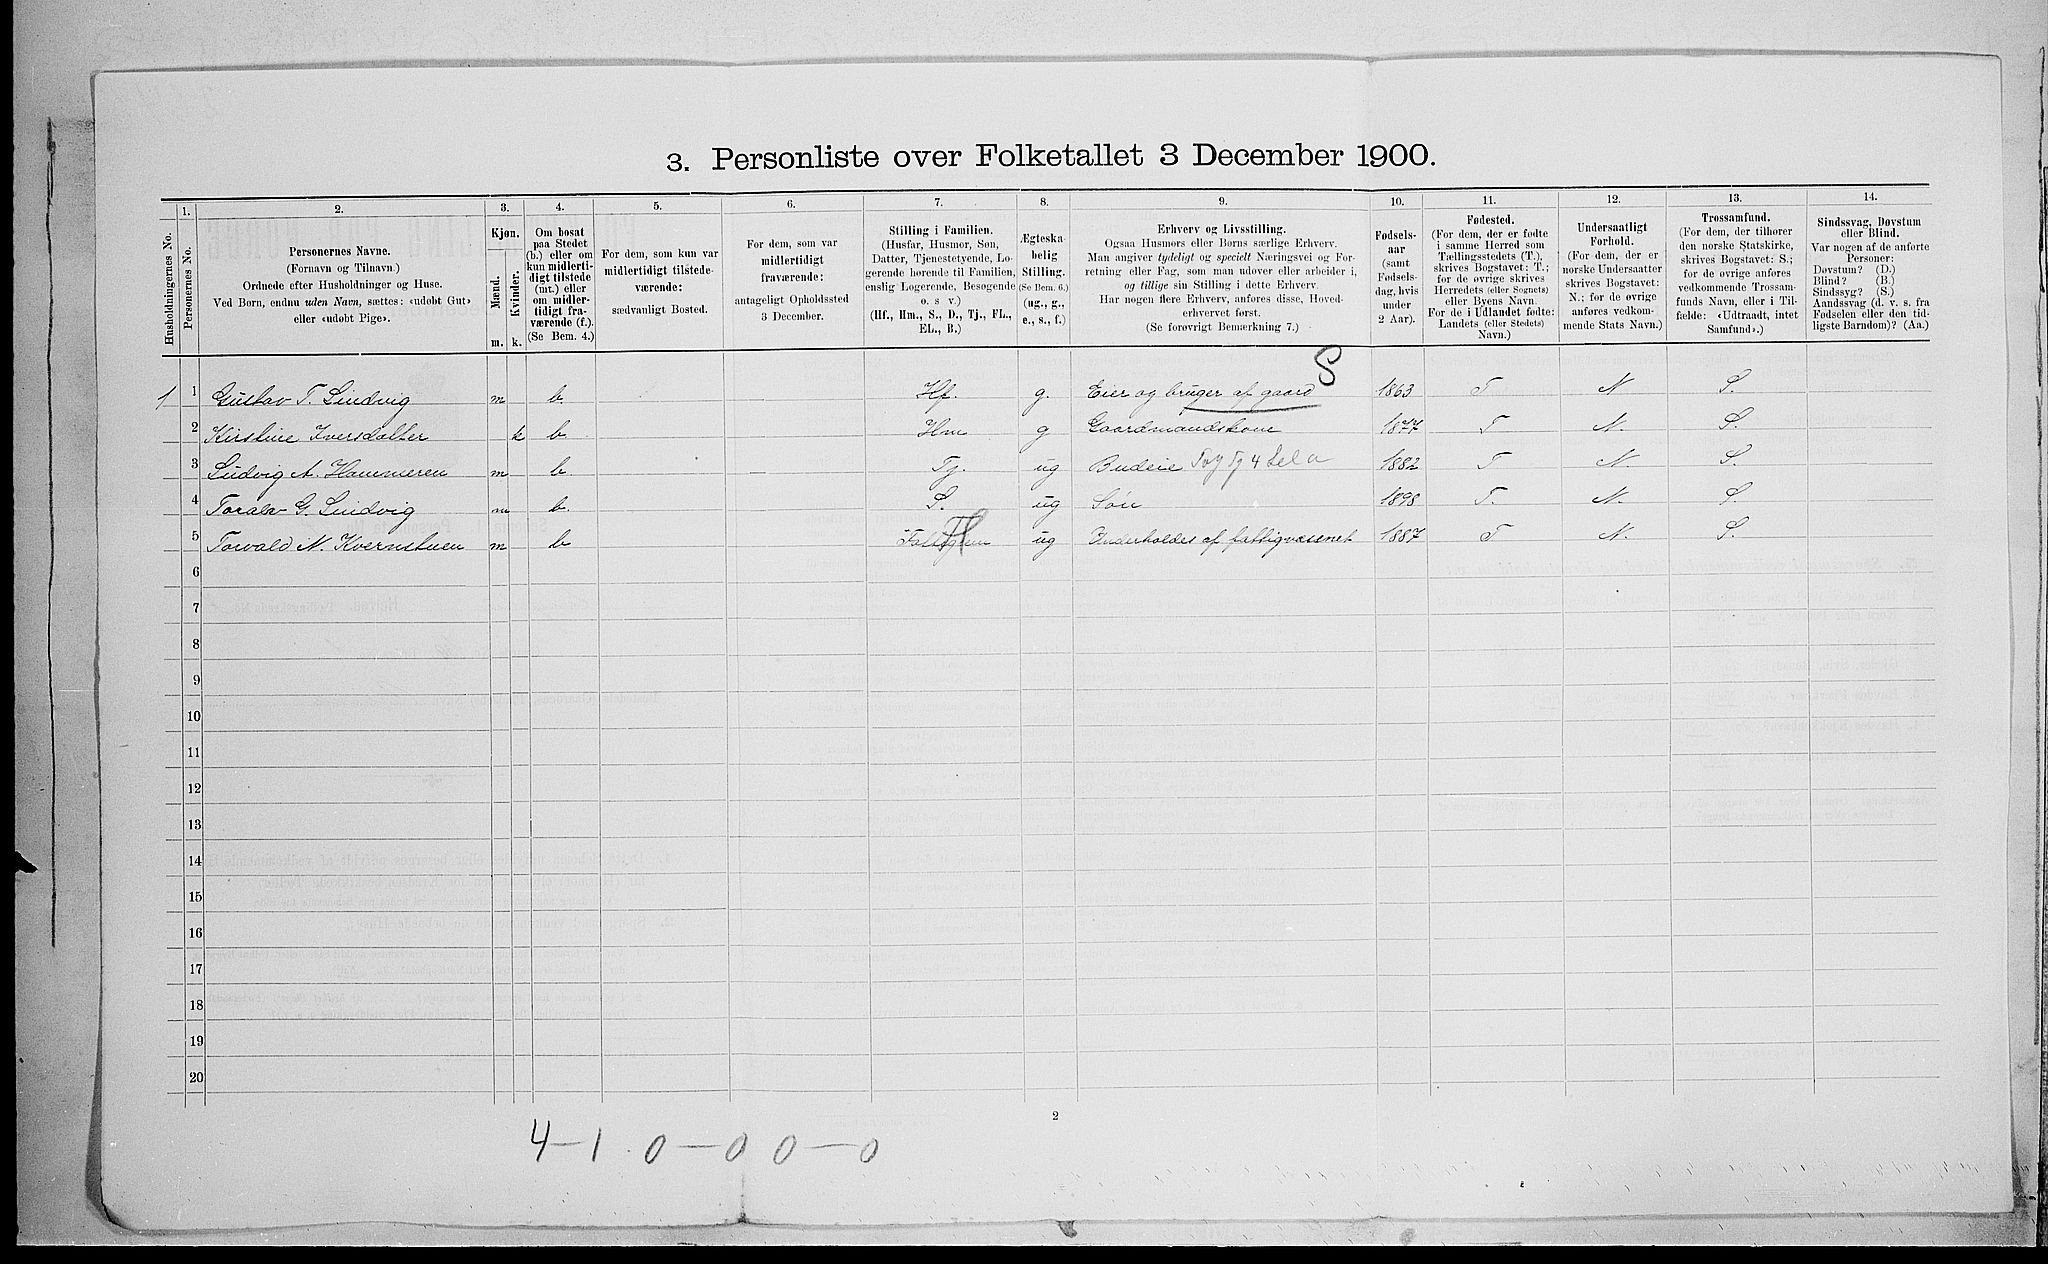 3. Personliste over Folketallet 3 December 1900.
1. 2. 3. 4. 5. 6. 7. 8. 9. 10. 11. 12. 13. 14.
Husholdningernes No.
Personernes No.
Personernes Navne.
(Fornavn og Tilnavn.)
Ordnede efter Husholdninger og Huse.
Ved Børn, endnu uden Navn, sættes: «udøbt Gut»
eller «udøbt Pige».
Kjøn.
Mænd.
Kvinder.
m. k.
Om bosat
paa Stedet
(b.) eller om
kun midlerti-
digt tilstede
(mt.) eller
om midler-
tidigt fra-
værende (f.).
(Se Bem. 4.)
For dem, som kun var
midlertidigt tilstede-
værende:
sædvanligt Bosted.
For dem, som var
midlertidigt
fraværende:
antageligt Opholdssted
3 December.
Stilling i Familien.
(Husfar, Husmor, Søn,
Datter, Tjenestetyende, Lo-
gerende hørende til Familien,
enslig Logerende, Besøgende
o. s v.)
(Hf., Hm., S., D., Tj., FL.,
EL., B.)
Ægteska-
belig
Stilling.
(Se Bem. 6.)
(ug., g.,
e., s., f.)
Erhverv og Livsstilling.
Ogsaa Husmors eller Børns særlige Erhverv.
Man angiver tydeligt og specielt Næringsvei og For-
retning eller Fag, som man udøver eller arbeider i,
og tillige sin Stilling i dette Erhverv.
Har nogen flere Erhverv, anføres disse, Hoved-
erhvervet først.
(Se forøvrigt Bemærkning 7.)
Fødsels-
aar
(samt
Fødsels-
dag, hvis
under
2 Aar).
Fødested.
(For dem, der er fødte
i samme Herred som
Tællingsstedets (T.),
skrives Bogstavet: T.;
for de øvrige skrives
Herredets (eller Sognets)
eller Byens Navn.
For de i Udlandet fødte:
Landets (eller Stedets)
Navn.)
Undersaatligt
Forhold.
(For dem, der er
norske Undersaatter
skrives Bogstavet:
N.; for de øvrige
anføres vedkom-
mende Stats Navn.)
Trossamfund.
(For dem, der tilhører
den norske Statskirke,
skrives Bogstavet: S.;
for de øvrige anføres
vedkommende Trossam-
funds Navn, eller i Til-
fælde: «Udtraadt, intet
Samfund».)
Sindssvag, Døvstum
eller Blind.
Var nogen af de anførte
Personer:
Døvstum? (D.)
Blind? (B.)
Sindssyg? (S.)
Aandssvag (d. v. s. fra
Fødselen eller den tid-
ligste Barndom)? (Aa.)
S
1 1 Gustav T. Lindvig m b. Hf. g. Eier og bruger af gaard 1863 T N S.
2 Kirstine Iversdatter k b Hm g Gaardmandskone 1877 T N. S.
3 Ludvig A. Hammeren m b. — Tj. ug Budeie 1882 T N. S.
4 Toralv G. Lindvig m b. S. ug Søn 1898 T. N. S.
5 Torvald N. Kvernstuen m b Fl ug Underholdes af fattigvæsenet 1887 T N. S.
6
7
8
9
10
11
12
13
14
15
16
17
18
19
20
2
4—1 0—0 0—0